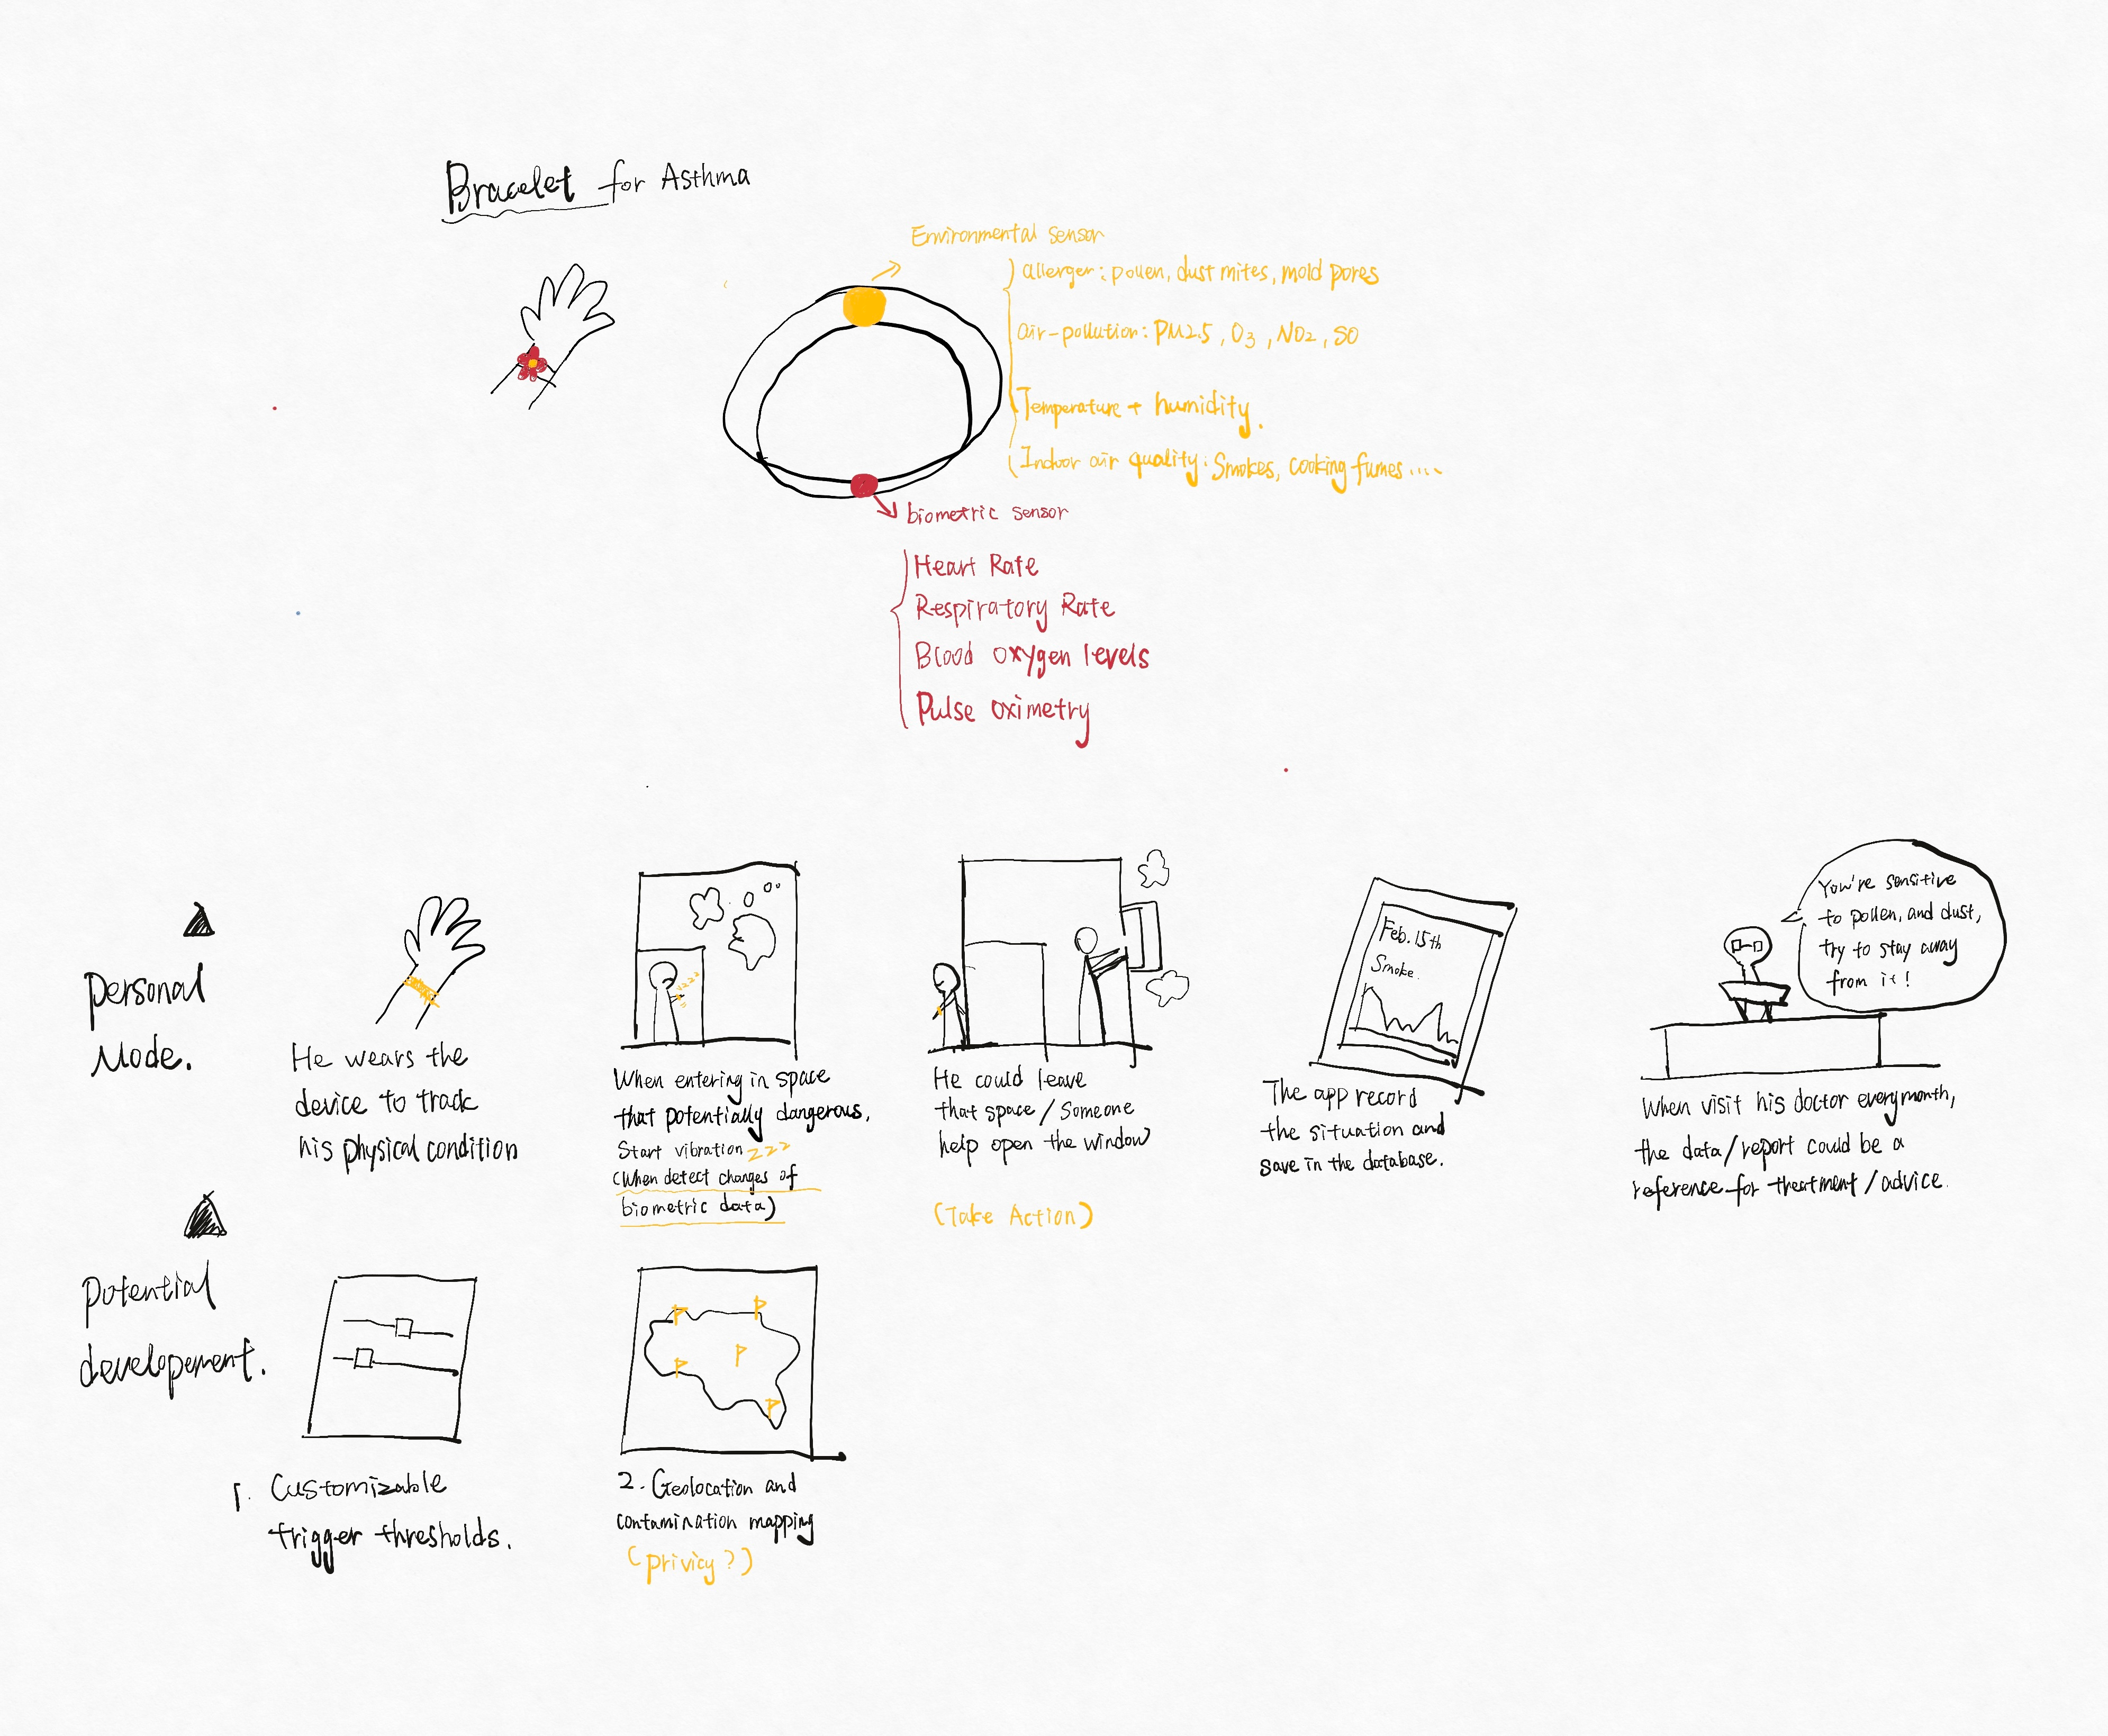 Bracelet for Asthma
Environmental sensor
allerger: pollen, dust mites, mold pores
air-pollution: PM2.5, O3, NO2, SO
Temperature + humidity.
Indoor air quality: Smokes, cooking fumes....
biometric sensor
Heart Rate
Respiratory Rate
Blood oxygen levels
Pulse oximetry
personal
Mode.
He wears the
device to track
his physical condition
zzzz
When entering in space
that potentially dangerous.
Start vibration zzz
(When detect changes of
biometric data)
He could leave
that space/someone
help open the window
(Take Action)
Feb. 15th
Smoke.
The app record
the situation and
save in the database.
You're sensitive
to pollen, and dust,
try to stay away
from it!
When visit his doctor every month,
the data/report could be a
reference for treatment/advice.
potential
developement.
1. Customizable
trigger thresholds.
P
P
P
P
P
2. Geolocation and
contamination mapping
(privicy?)